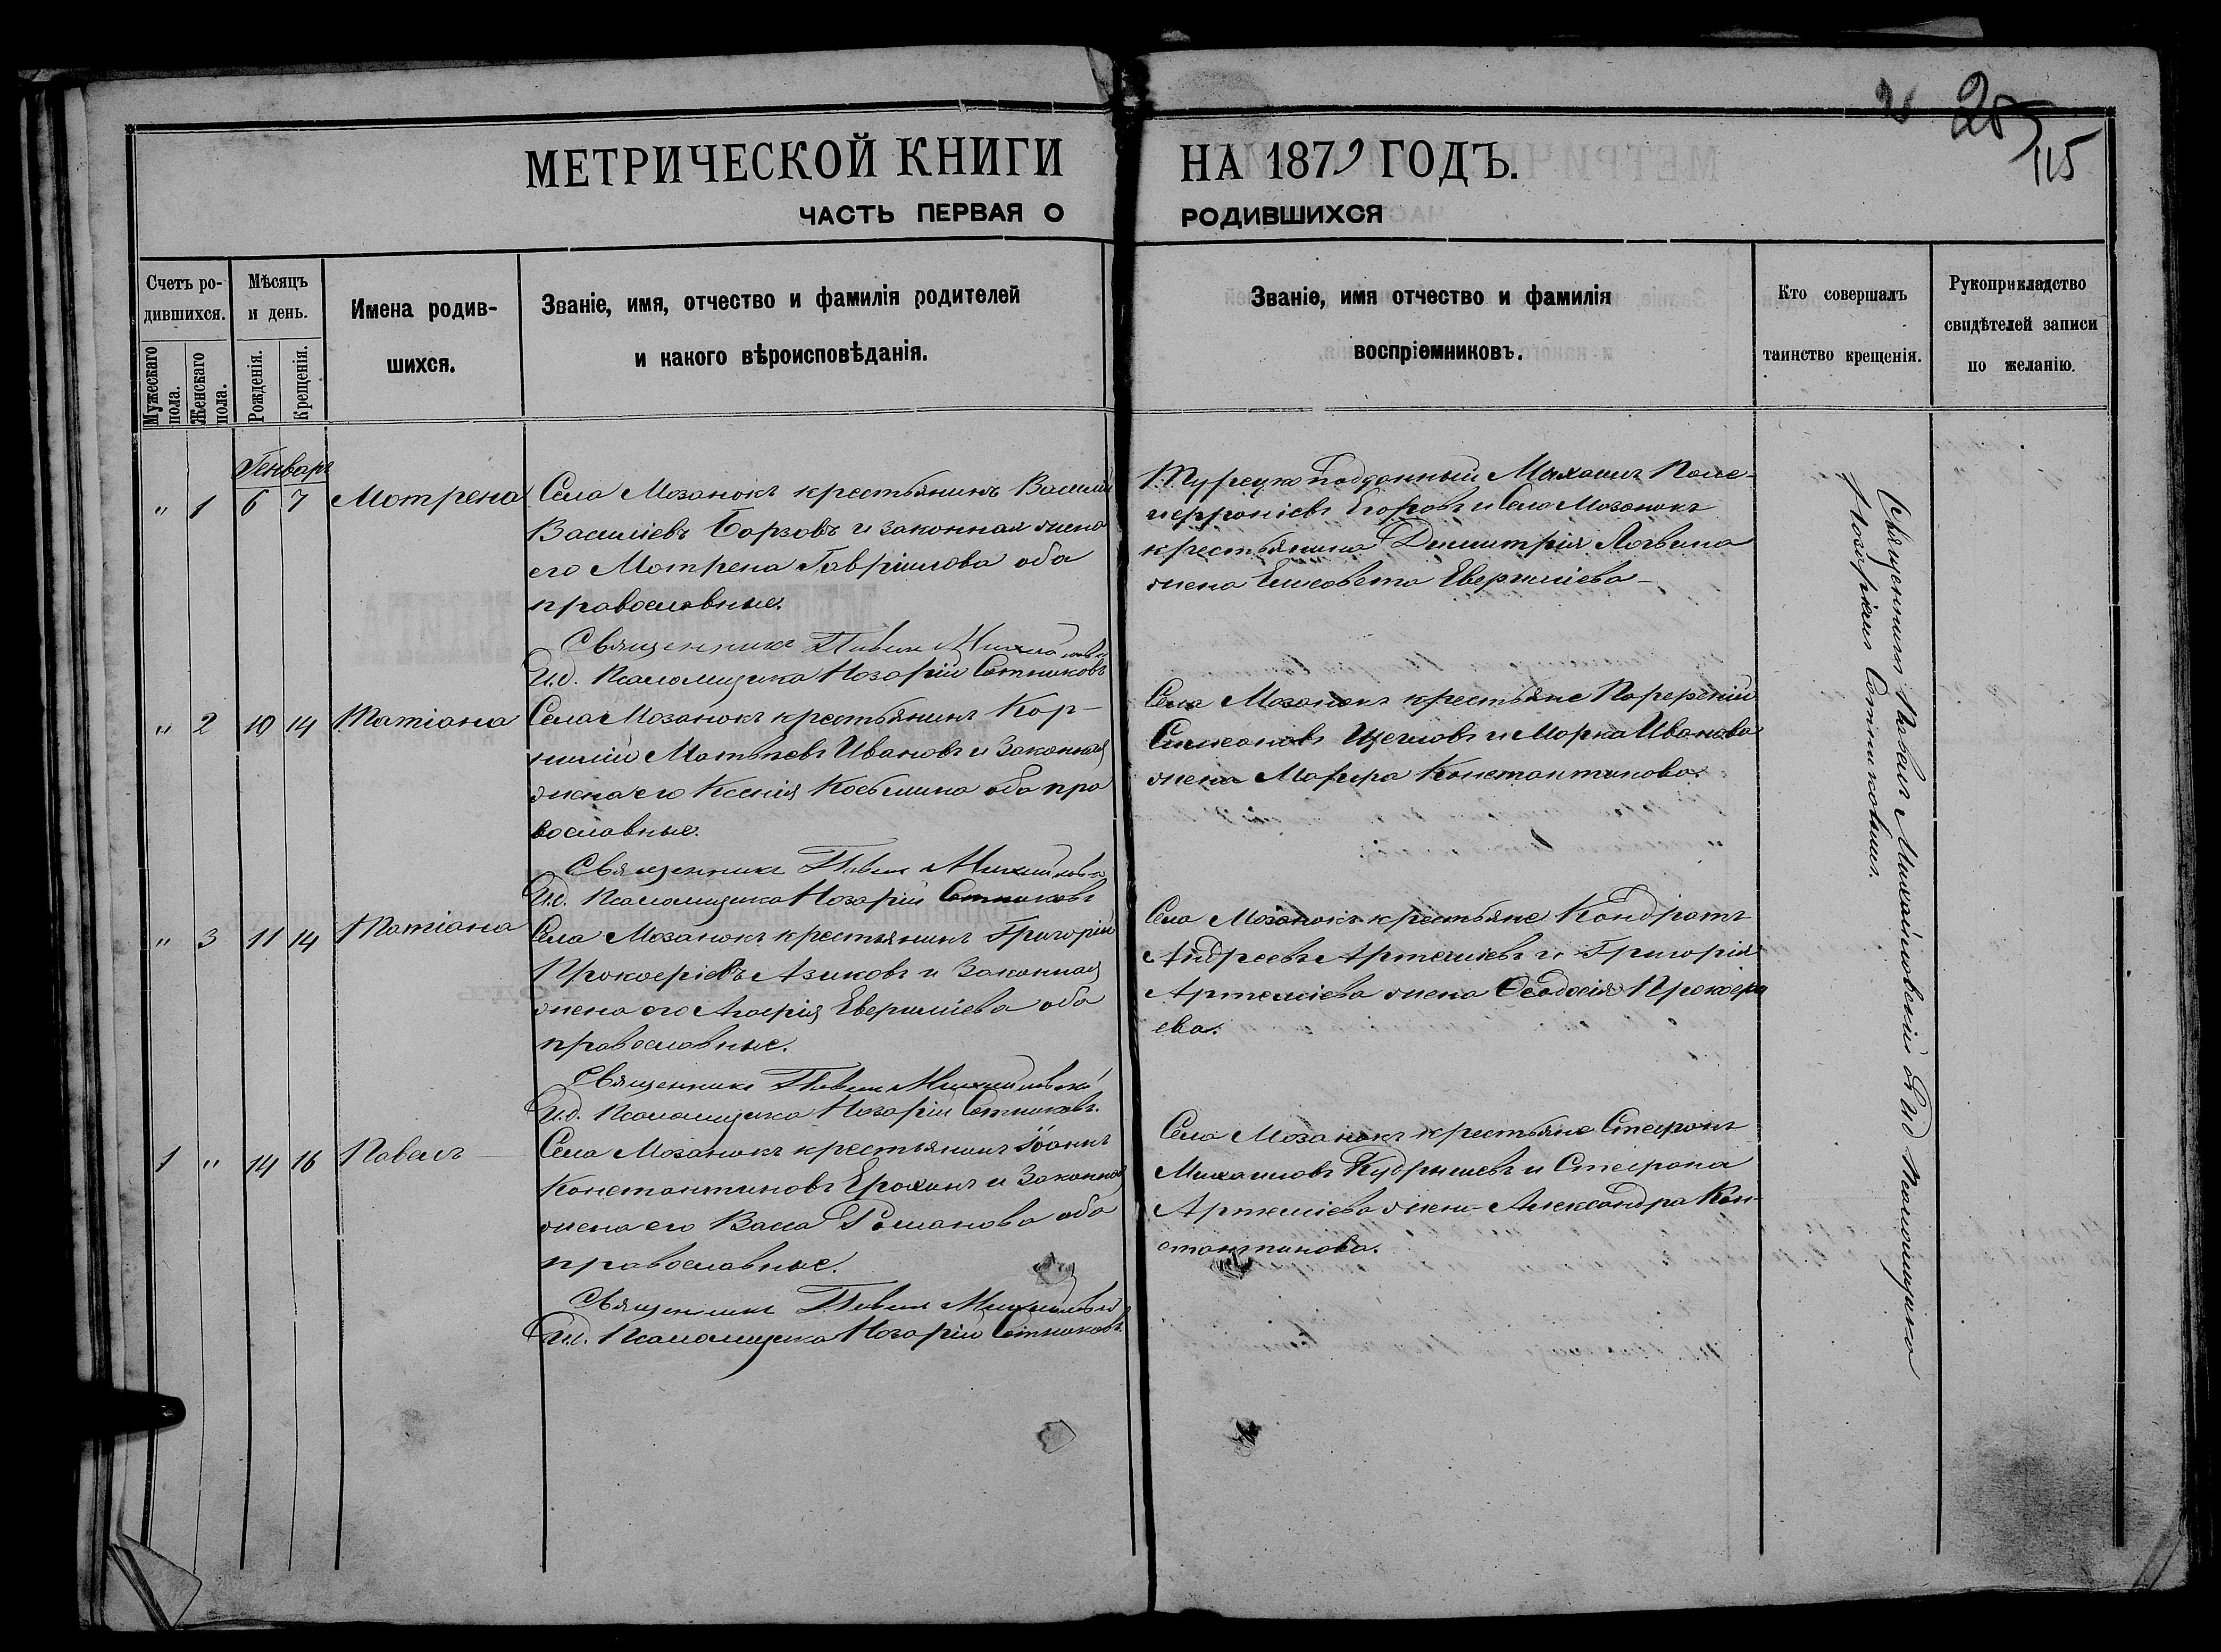 205
115
МЕТРИЧЕСКОЙ КНИГИ НА 1879 ГОДЪ.
ЧАСТЬ ПЕРВАЯ О РОДИВШИХСЯ
Счетъ ро-
дившихся.
Мужескаго пола.
Женскаго пола.
Мѣсяцъ
и день.
Рожденія.
Крещенія.
Имена родив-
шихся.
Званіе, имя, отчество и фамилія родителей
и какого вѣроисповѣданія.
Званіе, имя отчество и фамилія
воспріемниковъ.
Кто совершалъ
таинство крещенія.
Рукоприкладство
свидѣтелей записи
по желанію.
Генварь
" 1 6 7 Мотрена
Села Мозанокъ крестьянинъ Василій
Василіевъ Борзовъ и законная жена
его Мотрена Гавріилова оба
православные.
Священникъ Павелъ Михайловскій
И.д. Псаломщика Назарій Сотниковъ
Турецко подданный Михаилъ
Егоровъ и Села Мозанокъ
крестьянина Димитрія Логвина
жена Елисавета
" 2 10 14 Татіана
Села Мозанокъ крестьянинъ Кор-
нилій Матьѣевъ Ивановъ и законная
жена его Ксенія Косьмина оба пра
вославные.
Священникъ Павелъ Михайловскій
И.д. Псаломщика Назарій Сотниковъ
Села Мозанокъ крестьяне Порфирій
Симеоновъ Щегловъ и Марка Иванова
жена Марфа Константинова.
" 3 11 14 Татіана
Села Мозанокъ крестьянинъ Григорій
Прокофіевъ Азиковъ и законная
жена его Агафія оба
православные.
Священникъ Павелъ Михайловскій
И.д. Псаломщика Назарій Сотниковъ.
Села Мозанокъ крестьяне Кондратъ
Андреевъ Артеміевъ и Григорія
Артеміева жена Ѳеодосія Прокофі
ева.
1 " 14 16 Павелъ
Села Мозанокъ крестьянинъ Іоаннъ
Константиновъ Ерохинъ и законная
жена его Васса Романова оба
православные.
Священникъ Павелъ Михайловскій
И.д. Псаломщика Назарій Сотниковъ.
Села Мозанокъ крестьяне Стефанъ
Михаиловъ Кудряшевъ и Стефана
Артеміева жена Александра Кон-
стантинова.
Священникъ Павелъ Михайловскій съ И.д. Псаломщика
Назаріемъ Сотниковымъ.